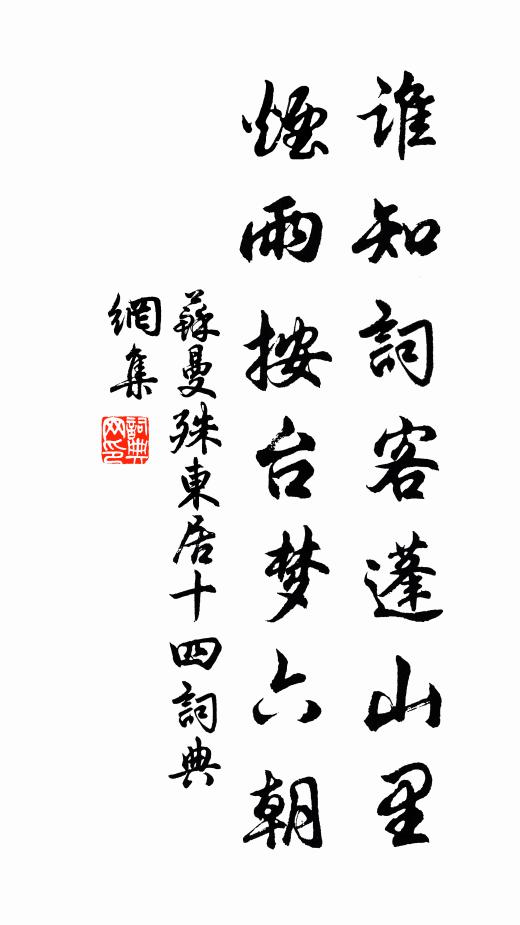 誰知詞客蓬山里
煙雨按台梦六朝
蘇曼殊東居十四詞典
網集
詞典网印